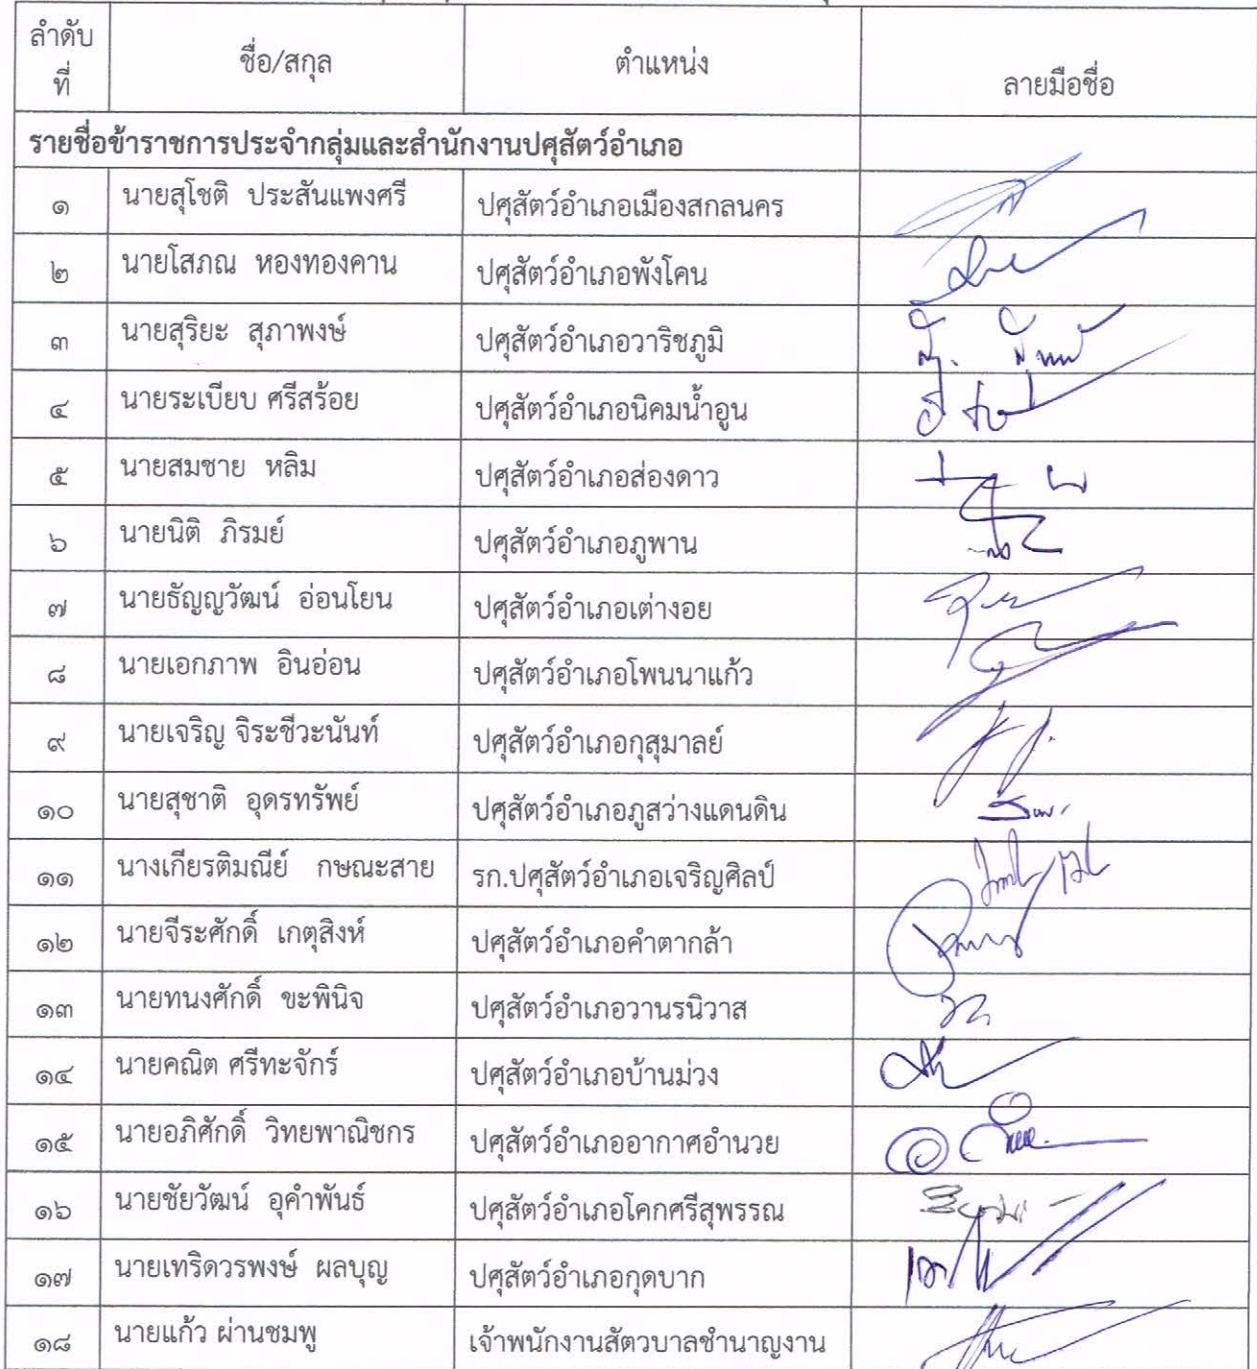 ลำดับ
ที่
ชื่อ/สกุล
ตำแหน่ง
ลายมือชื่อ
รายชื่อข้าราชการประจำกลุ่มและสำนักงานปศุสัตว์อำเภอ
๑ นายสุโชติ ประสันแพงศรี ปศุสัตว์อำเภอเมืองสกลนคร
๒ นายโสภณ หองทองคาน ปศุสัตว์อำเภอพังโคน
๓ นายสุริยะ สุภาพงษ์ ปศุสัตว์อำเภอวาริชภูมิ
๔ นายระเบียบ ศรีสร้อย ปศุสัตว์อำเภอนิคมน้ำอูน
๕ นายสมชาย หลิม ปศุสัตว์อำเภอส่องดาว
๖ นายนิติ ภิรมย์ ปศุสัตว์อำเภอภูพาน
๗ นายธัญญวัฒน์ อ่อนโยน ปศุสัตว์อำเภอเต่างอย
๘ นายเอกภาพ อินอ่อน ปศุสัตว์อำเภอโพนนาแก้ว
๙ นายเจริญ จิระชีวะนันท์ ปศุสัตว์อำเภอกุสุมาลย์
๑๐ นายสุชาติ อุดรทรัพย์ ปศุสัตว์อำเภอภูสว่างแดนดิน
๑๑ นางเกียรติมณีย์ กษณะสาย รก.ปศุสัตว์อำเภอเจริญศิลป์
๑๒ นายจีระศักดิ์ เกตุสิงห์ ปศุสัตว์อำเภอคำตากล้า
๑๓ นายทนงศักดิ์ ขะพินิจ ปศุสัตว์อำเภอวานรนิวาส
๑๔ นายคณิต ศรีทะจักร์ ปศุสัตว์อำเภอบ้านม่วง
๑๕ นายอภิศักดิ์ วิทยพาณิชกร ปศุสัตว์อำเภออากาศอำนวย
๑๖ นายชัยวัฒน์ อุคำพันธ์ ปศุสัตว์อำเภอโคกศรีสุพรรณ
๑๗ นายเทริดวรพงษ์ ผลบุญ ปศุสัตว์อำเภอกุดบาก
๑๘ นายแก้ว ผ่านชมพู เจ้าพนักงานสัตวบาลชำนาญงาน